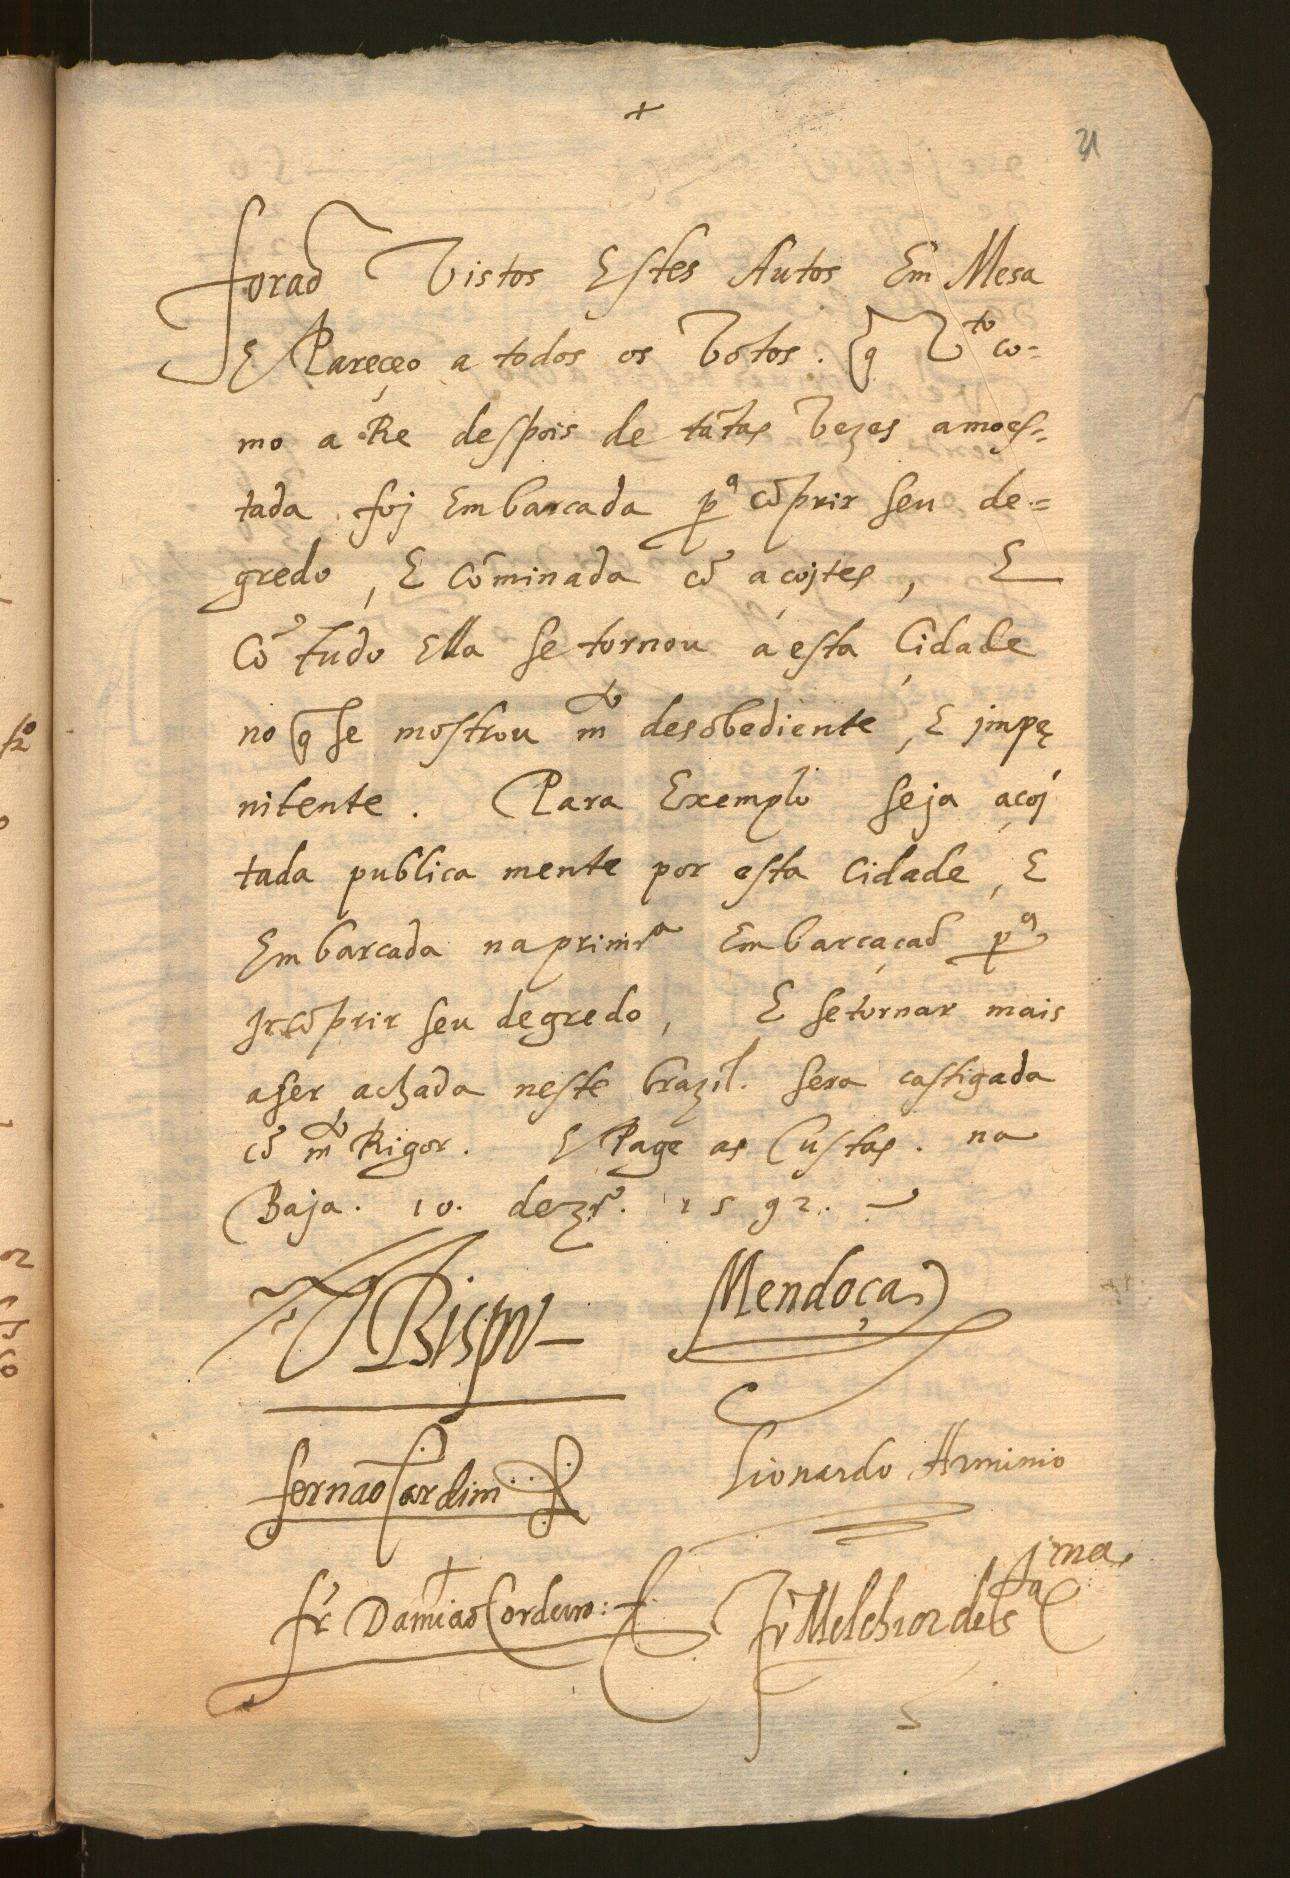 +
21
foraõ Vistos Estes Autos Em Mesa
E Pareçeo a todos os Votos. q̃ V^to co=
mo a Re despois de tãtas Vezes amoes=
tada foj Embarcada p^a cõprir seu de=
gredo, E Cõminada cõ açojtes, E
Cõ tudo Ella se tornou a esta Çidade
no q̃ se mostrou m^to desobediente, E jmpe
nitente. Para Exemplo seja açoj
tada publica mente por esta Cidade, E
Embarcada na primr^a Embarcaçaõ p^a
Ir cõprir seu degredo, E se tornar mais
a ser achada neste brazil. sera castigada
cõ m^to Rigor. E Page as Custas. na
Baja. 10. dezr^o. 1592.
Bispo
Mendoça
fernaõ Cardim
Lionardo Arminio
fr Damiaõ Cordeiro
fr Melchior de S^ta